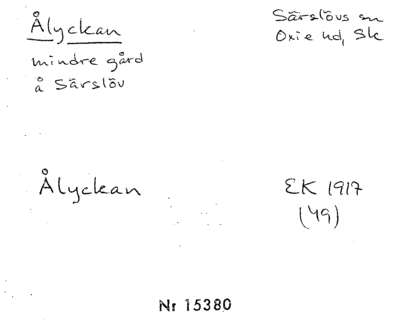 Ålyckan
Särslövs sn
Oxie hd, Sk
mindre gård
å Särslöv
Ålyckan
EK 1917
(49)
Nr 15380